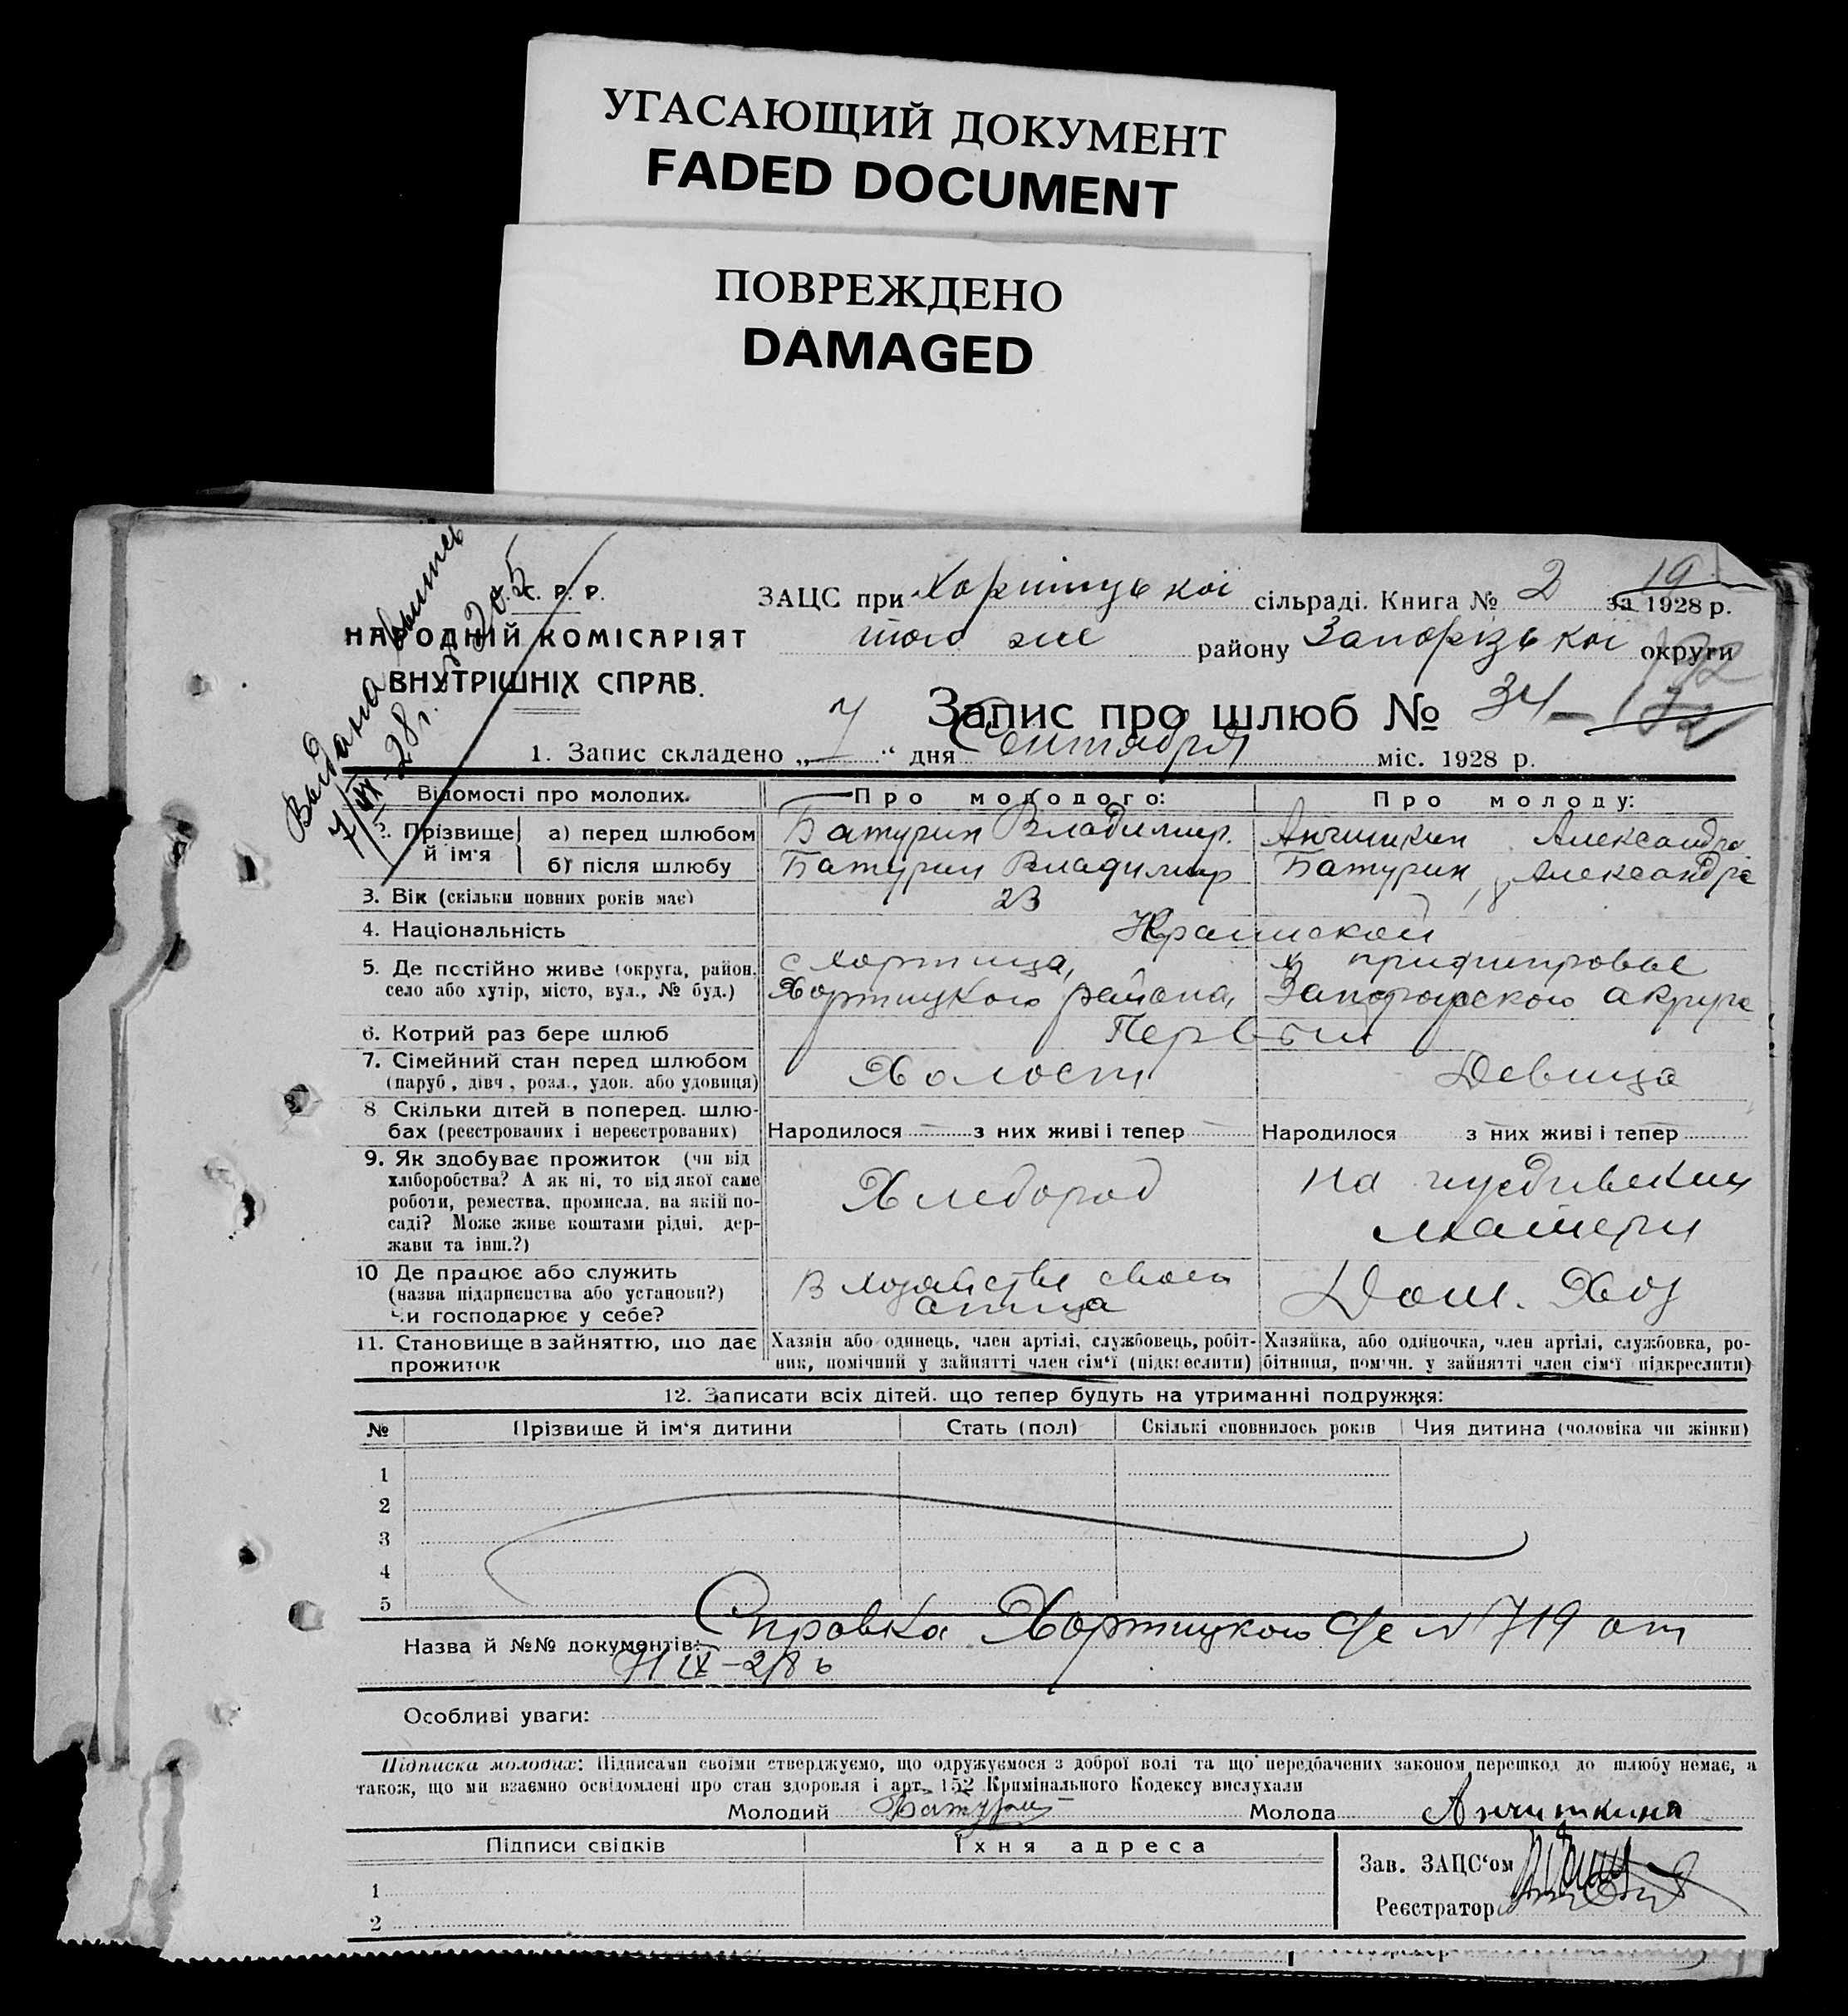 УГАСАЮЩИЙ ДОКУМЕНТ
FADED DOCUMENT
ПОВРЕЖДЕНО
DAMAGED
Выдана выпись
7/IX-28 г. № 205
С. Р. Р.
НАРОДНІЙ КОМІСАРІЯТ
ВНУТРІШНІХ СПРАВ.
ЗАЦС при Хортицької сільраді. Книга № 2 за 1928 р.
19
того же району Запорізької округи
Запис про шлюб № 34
1. Запис складено „7“ дня Сентября міс. 1928 р.
Відомості про молодих. Про молодого: Про молоду:
2. Прізвище й ім'я
а) перед шлюбом Батурин Владимир. Анчишкин Александра
б) після шлюбу Батурин Владимир Батурин Александра
3. Вік (скільки повних років має) 23
4. Національність
5. Де постійно живе (округа, район, с Хортица,
село або хутір, місто, вул., № буд.) Хортицкого района, Запорожского округа
6. Котрий раз бере шлюб Первый
7. Сімейний стан перед шлюбом Холост Девица
(паруб, дівч, розл., удов. або удовиця)
8 Скільки дітей в поперед. шлю-
бах (реєстрованих і нереєстрованих) Народилося з них живі і тепер Народилося з них живі і тепер
9. Як здобуває прожиток (чи від
хліборобства? А як ні, то від якої саме
роботи, ремества, промисла, на якій по-
саді? Може живе коштами рідні, дер-
жави та інш.?)
Хлебород
на иждивении
матери
10 Де працює або служить
(назва підприємства або установи?)
Чи господарює у себе?
В хозяйстве своего
отца
Дом. Хоз
11. Становище в зайняттю, що дає
прожиток
Хазяїн або одинець, член артілі, службовець, робіт-
ник, помічний у зайнятті член сім'ї (підкреслити)
Хазяйка, або одиночка, член артілі, службовка, ро-
бітниця, помічн. у зайнятті член сім'ї підкреслити)
12. Записати всіх дітей, що тепер будуть на утриманні подружжя:
№ Прізвище й ім'я дитини Стать (пол) Скількі сповнилось років Чия дитина (чоловіка чи жінки)
1
2
3
4
5
Назва й №№ документів: Справка Хортицкого с/с № 719 от
7/IX-28 г
Особливі уваги:
Підписка молодих: Підписами своїми стверджуємо, що одружуємося з доброї волі та що передбачених законом перешкод до шлюбу немає, а
також, що ми взаємно освідомлені про стан здоровля і арт. 152 Кримінального Кодексу вислухали
Молодий Батурин Молода Анчишкина
Підписи свідків Їхня адреса
1
2
Зав. ЗАЦС'ом
Реєстратор